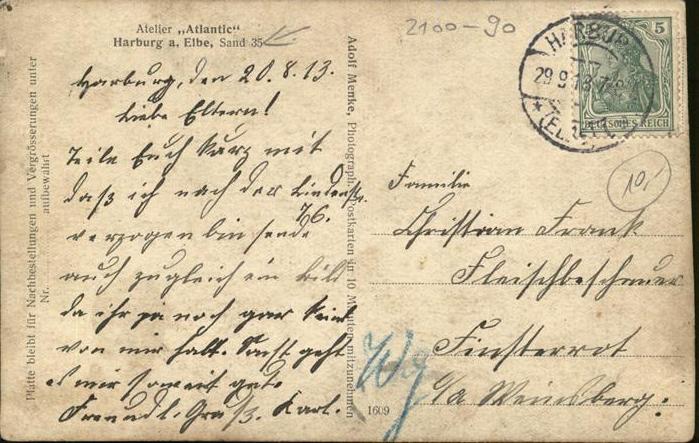 Atelier „Atlantic“
Harburg a. Elbe, Sand 35
Harburg, den 20.8.13.
Liebe Eltern!
Teile Euch kurz mit
daß ich nach der Lindenstr.
76.
verzogen bin sende
auch zugleich ein Bild
da ihr ja noch gar keins
von mir habt. Sonst geht
es mir soweit gut.
Freundl. Gruß. Karl.
Platte bleibt für Nachbestellungen und Vergrösserungen unter
Nr. aufbewahrt
Adolf Menke, Photograph. Postkarten in 10 Minuten mitzunehmen
1609
2100-90
HARBURG
29.9.13
(ELBE)
5
DEUTSCHES REICH
10,-
Familie
Christian Frank
Fleischbeschauer
Finsterrot
O/A Weinsberg.